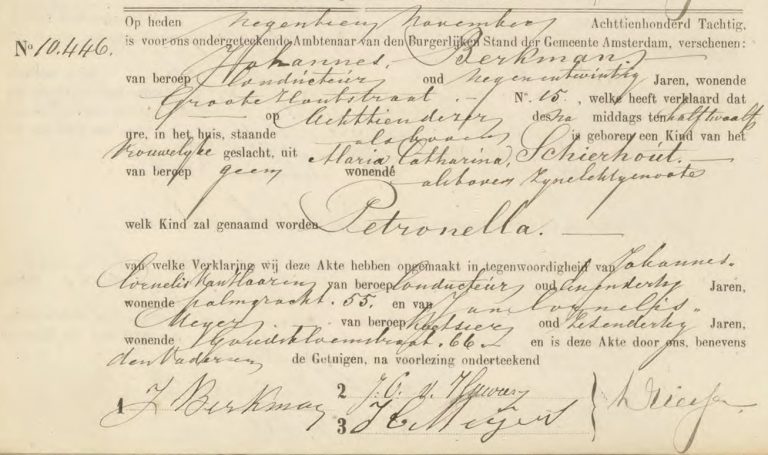 Op heden negentien November Achttienhonderd Tachtig,
No. 10.446. is voor ons ondergeteekende Ambtenaar van den Burgerlijken Stand der Gemeente Amsterdam, verschenen:
Johannes, Berkman,
van beroep Conducteur oud negenentwintig Jaren, wonende
Groote Houtstraat No. 15, welke heeft verklaard dat
op Achttiendezer des na middags ten half twaalf
ure, in het huis, staande alsboven is geboren een Kind van het
Vrouwelijke geslacht, uit Maria Catharina, Schierhout.
van beroep geen wonende alsboven zijne Echtgenoote
welk Kind zal genaamd worden Petronella.
van welke Verklaring wij deze Akte hebben opgemaakt in tegenwoordigheid van Johannes
Cornelis van Haaren van beroep Conducteur oud eenendertig Jaren,
wonende palmgracht. 55. en van Jan Cornelis
Meyer van beroep oud zesendertig Jaren,
wonende Goudsbloemstraat. 66. en is deze Akte door ons, benevens
den Vader en de Getuigen, na voorlezing onderteekend
1 J Berkman 2 J. C. v. Haaren
3 J C Meijer